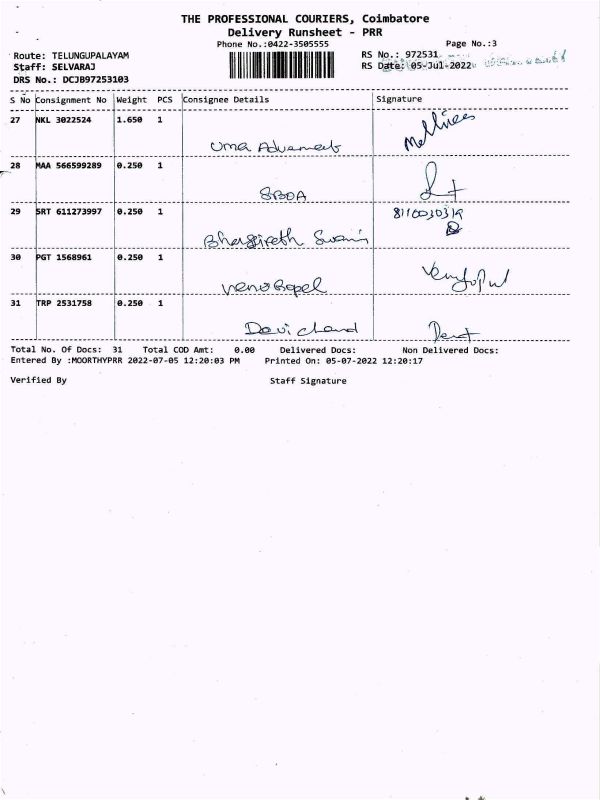 THE PROFESSIONAL COURIERS, Coimbatore
Delivery Runsheet - PRR
Phone No.:0422-3505555
Page No.:3
Route: TELUNGUPALAYAM
Staff: SELVARAJ
DRS No.: DCJB97253103
RS No.: 972531
RS Date: 05-Jul-2022
S No Consignment No Weight PCS Consignee Details Signature
27 NKL 3022524 1.650 1
Uma
28 MAA 566599289 0.250 1
SBOA
29 SRT 611273997 0.250 1 8110030319
Bhagireth Swami
30 PGT 1568961 0.250 1
Venugopal
31 TRP 2531758 0.250 1
Devichand
Total No. Of Docs: 31 Total COD Amt: 0.00 Delivered Docs: Non Delivered Docs:
Entered By :MOORTHYPRR 2022-07-05 12:20:03 PM Printed On: 05-07-2022 12:20:17
Verified By Staff Signature